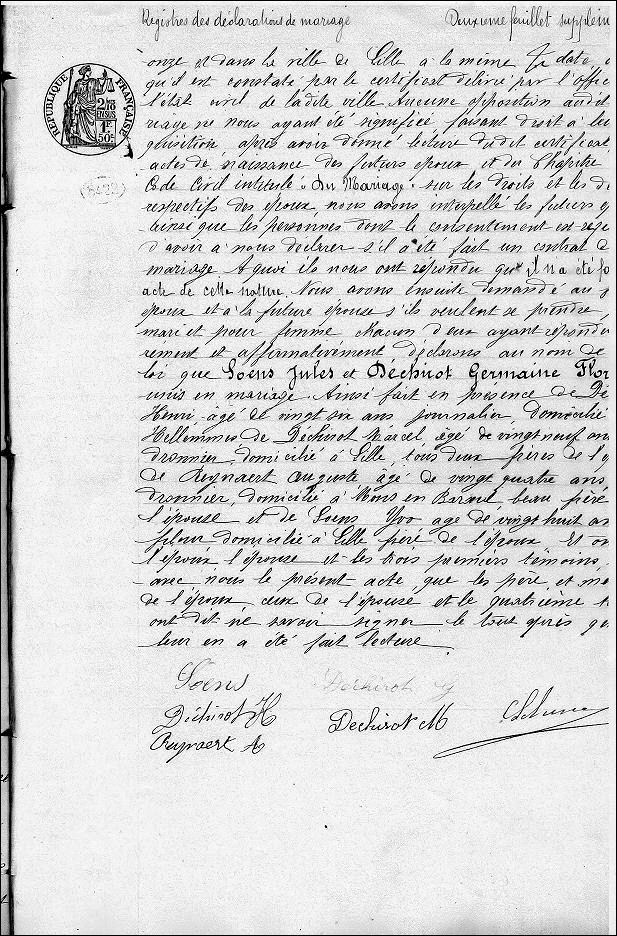 Registres des déclarations de mariage
Deuxième feuillet supplém
RÉPUBLIQUE FRANÇAISE
2/10 EN SUS
1F 50c
onze et dans la ville de Lille a la même date
qu'il est constaté par le certificat délivré par l'Offic
l'état civil de ladite ville Aucune opposition audit
riage ne nous ayant été signifiée, faisant droit à leu
quisition, après avoir donné lecture dudit certificat
actes de naissance des futurs époux et du Chapitre
Code Civil intitulé « Du Mariage » sur les droits et les d
respectifs des époux, nous avons interpellé les futurs é
ainsi que les personnes dont le consentement est requ
d'avoir à nous déclarer s'il a été fait un contrat d
mariage A quoi ils nous ont répondu qu'il n'a été fa
acte de cette nature. Nous avons ensuite demandé au
époux et à la future épouse s'ils veulent se prendre
mari et pour femme chacun d'eux ayant répondu
rement et affirmativement déclarons au nom de
loi que Soens Jules et Déchirot Germaine Flor
unis en mariage. Ainsi fait en présence de Dé
Henri, âgé de vingt six ans journalier, domicilié
Hellemmes de Déchirot Marcel, âgé de vingt neuf an
dronnier, domicilié à Lille, tous deux frères de l'é
de Reynaert Auguste âgé de vingt quatre ans,
dronnier, domicilié à Mons en Baroeul, beau frère
l'épouse et de Soens Yvo âgé de vingt huit an
fileur domicilié à Lille frère de l'époux Et on
l'époux, l'épouse et les trois premiers témoins,
avec nous le présent acte, que les père et mè
de l'époux, ceux de l'épouse et le quatrième t
ont dit ne savoir signer le tout après qu
leur en a été fait lecture.
Soens
Dechirot G
Déchirot H
Dechirot M
Reynaert A